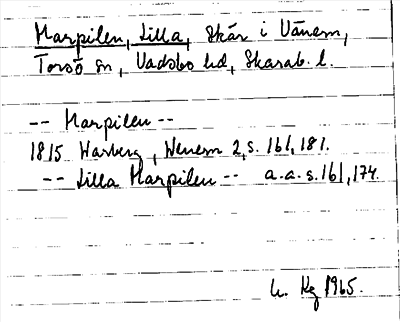 Harpilen, Lilla, Skär i Vänern,
Torsö sn, Vadsbo hd, Skarab. l.
-- Harpilen --
1815 Warberg, Wenern 2, s. 161, 181.
-- Lilla Harpilen -- a.a. s. 161, 174.
Kg 1965.